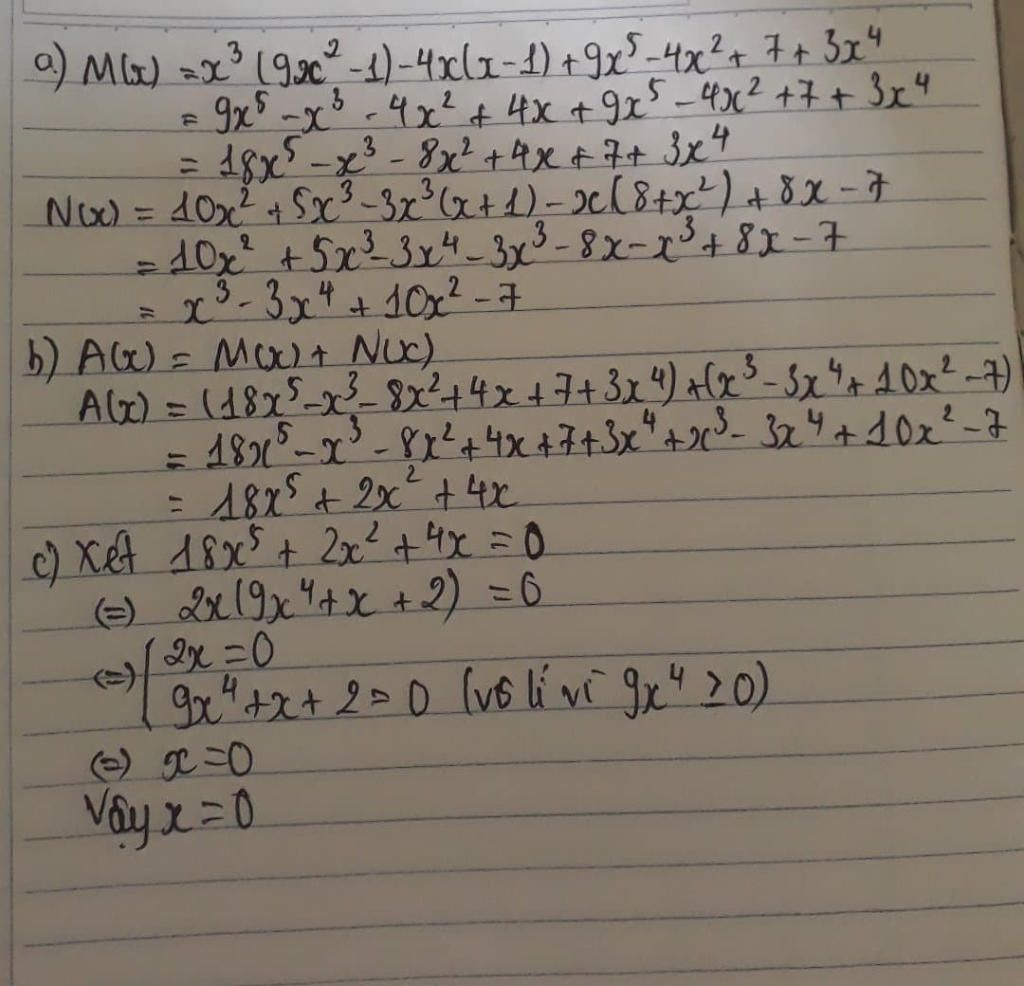 a) M(x) = x³ (9x² - 1) - 4x(x - 1) + 9x⁵ - 4x² + 7 + 3x⁴
= 9x⁵ - x³ - 4x² + 4x + 9x⁵ - 4x² + 7 + 3x⁴
= 18x⁵ - x³ - 8x² + 4x + 7 + 3x⁴
N(x) = 10x² + 5x³ - 3x³(x + 1) - x(8 + x²) + 8x - 7
= 10x² + 5x³ - 3x⁴ - 3x³ - 8x - x³ + 8x - 7
= x³ - 3x⁴ + 10x² - 7
b) A(x) = M(x) + N(x)
A(x) = (18x⁵ - x³ - 8x² + 4x + 7 + 3x⁴) + (x³ - 3x⁴ + 10x² - 7)
= 18x⁵ - x³ - 8x² + 4x + 7 + 3x⁴ + x³ - 3x⁴ + 10x² - 7
= 18x⁵ + 2x² + 4x
c) Xét 18x⁵ + 2x² + 4x = 0
(=) 2x(9x⁴ + x + 2) = 0
(=) [ 2x = 0
9x⁴ + x + 2 = 0 (vô lí vì 9x⁴ ≥ 0)
(=) x = 0
Vậy x = 0